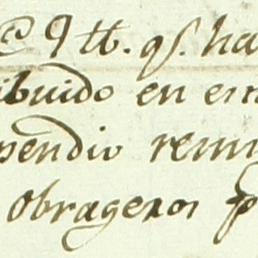 9 tt. qs. ha
ibuido en em
pendio remi
obrageros p